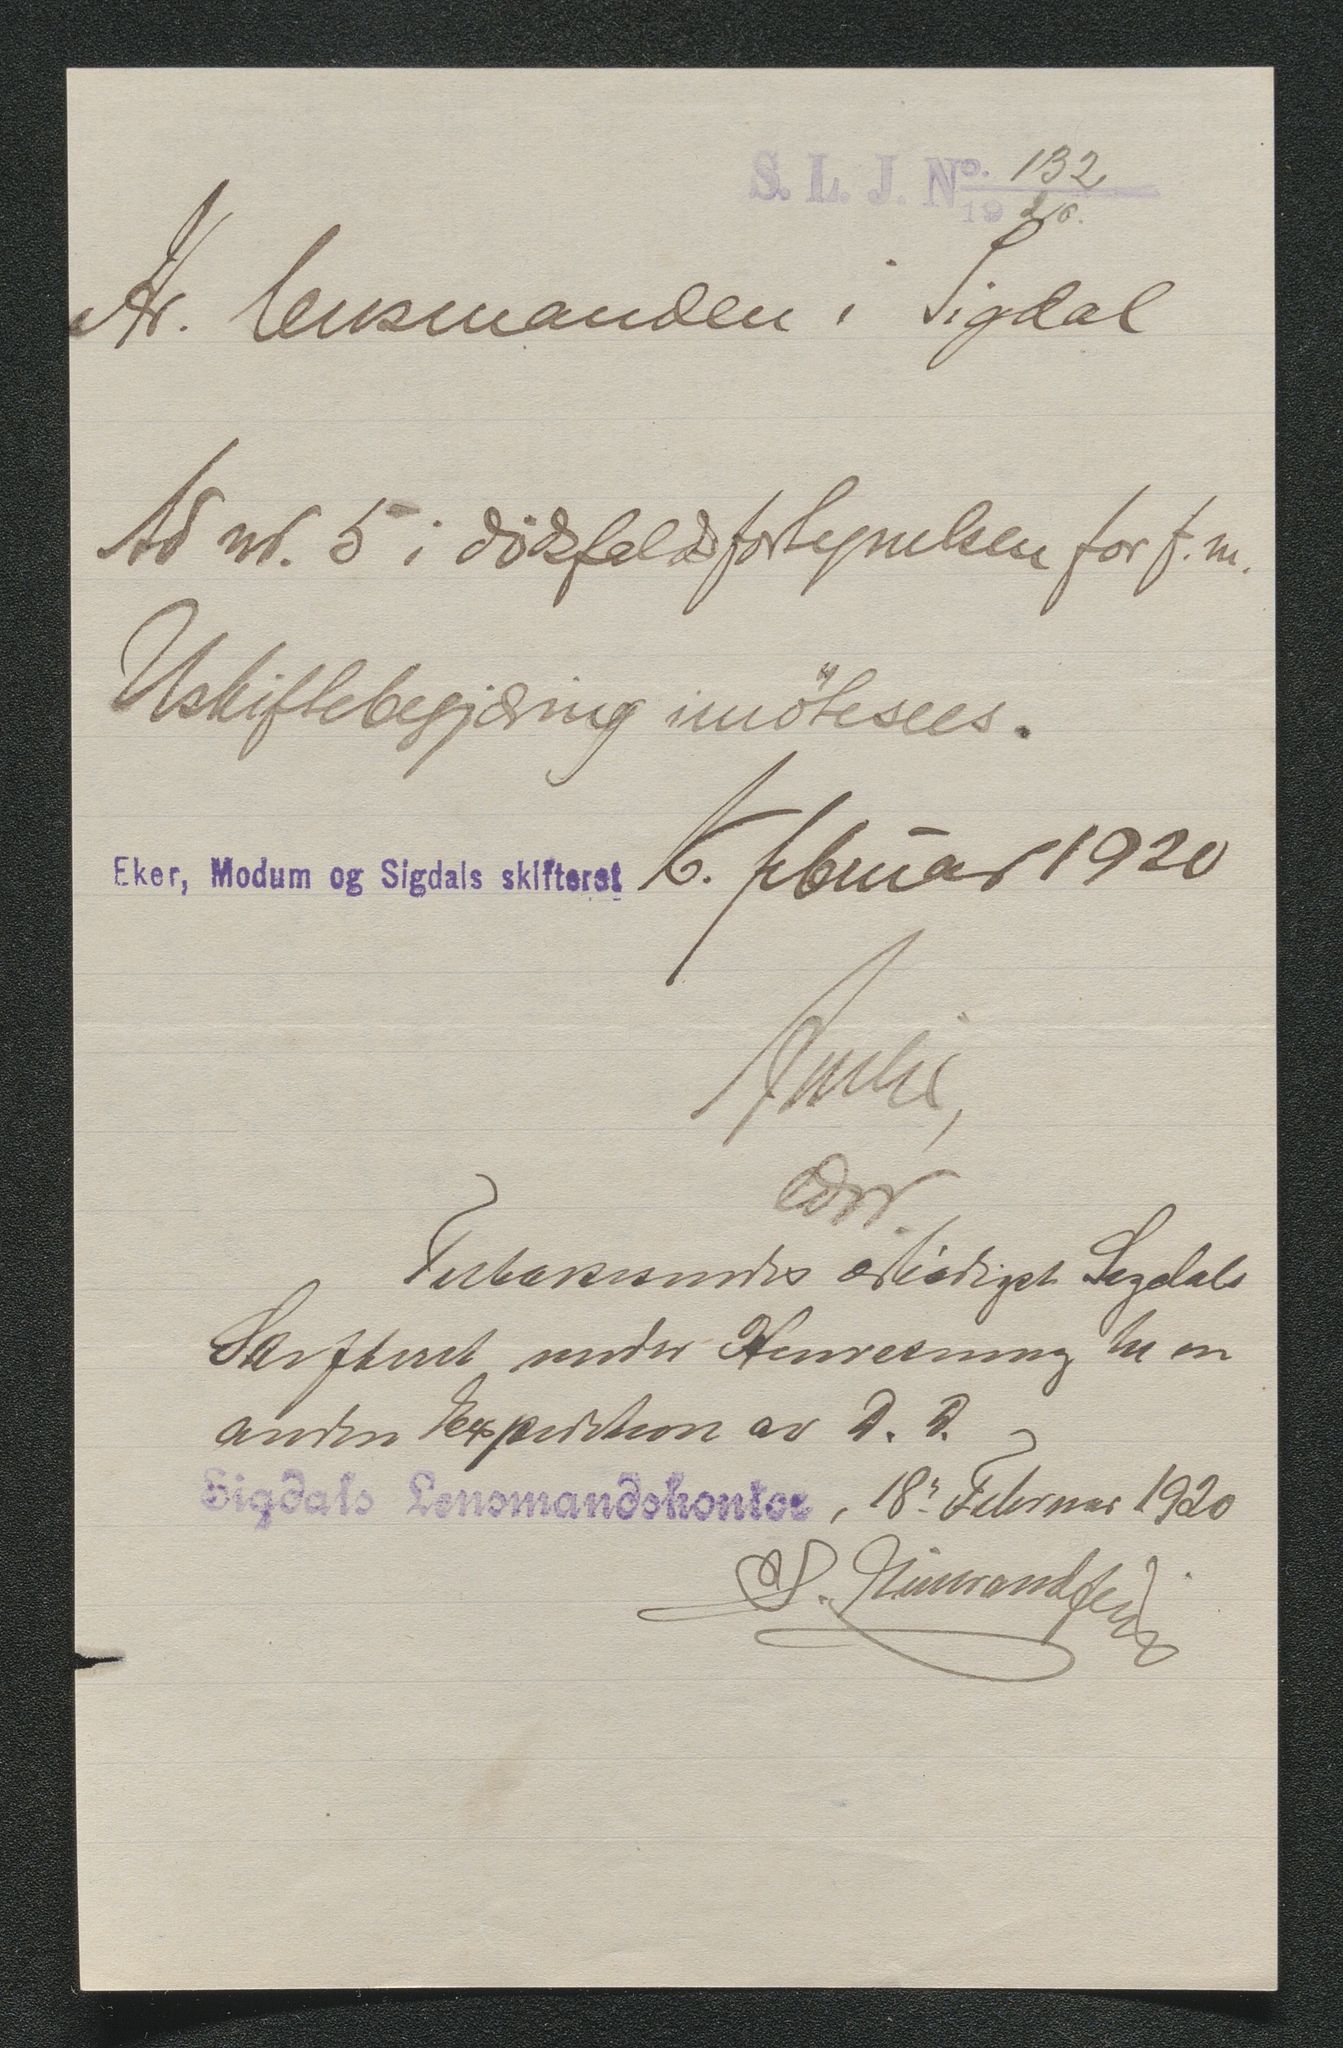 S. L. J. No. 132
1920.
Hr. lensmanden i Sigdal
Ad nr. 5 i dödsfaldsfortegnelsen for f. m.
Uskiftebegjæring imötesees.
Eker, Modum og Sigdals skifteret 6. februar 1920
Tilbakesendes ærbödigst Sigdals
Skifteret under Henvisning til en
anden Expedition av D. D.
Sigdals Lensmandskontor, 18' Februar 1920